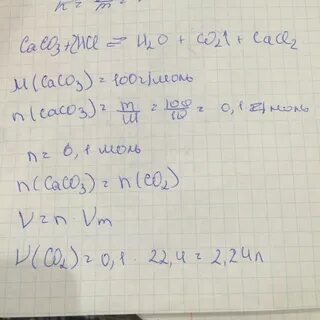 n = — =
m
CaCO3+2HCl = H2O + CO2↑ + CaCl2
M(CaCO3) = 100г/моль
n(CaCO3) = m/M = 100/10 = 0,1 моль
n = 0,1 моль
n(CaCO3) = n(CO2)
V = n · Vm
V(CO2) = 0,1 · 22,4 = 2,24л